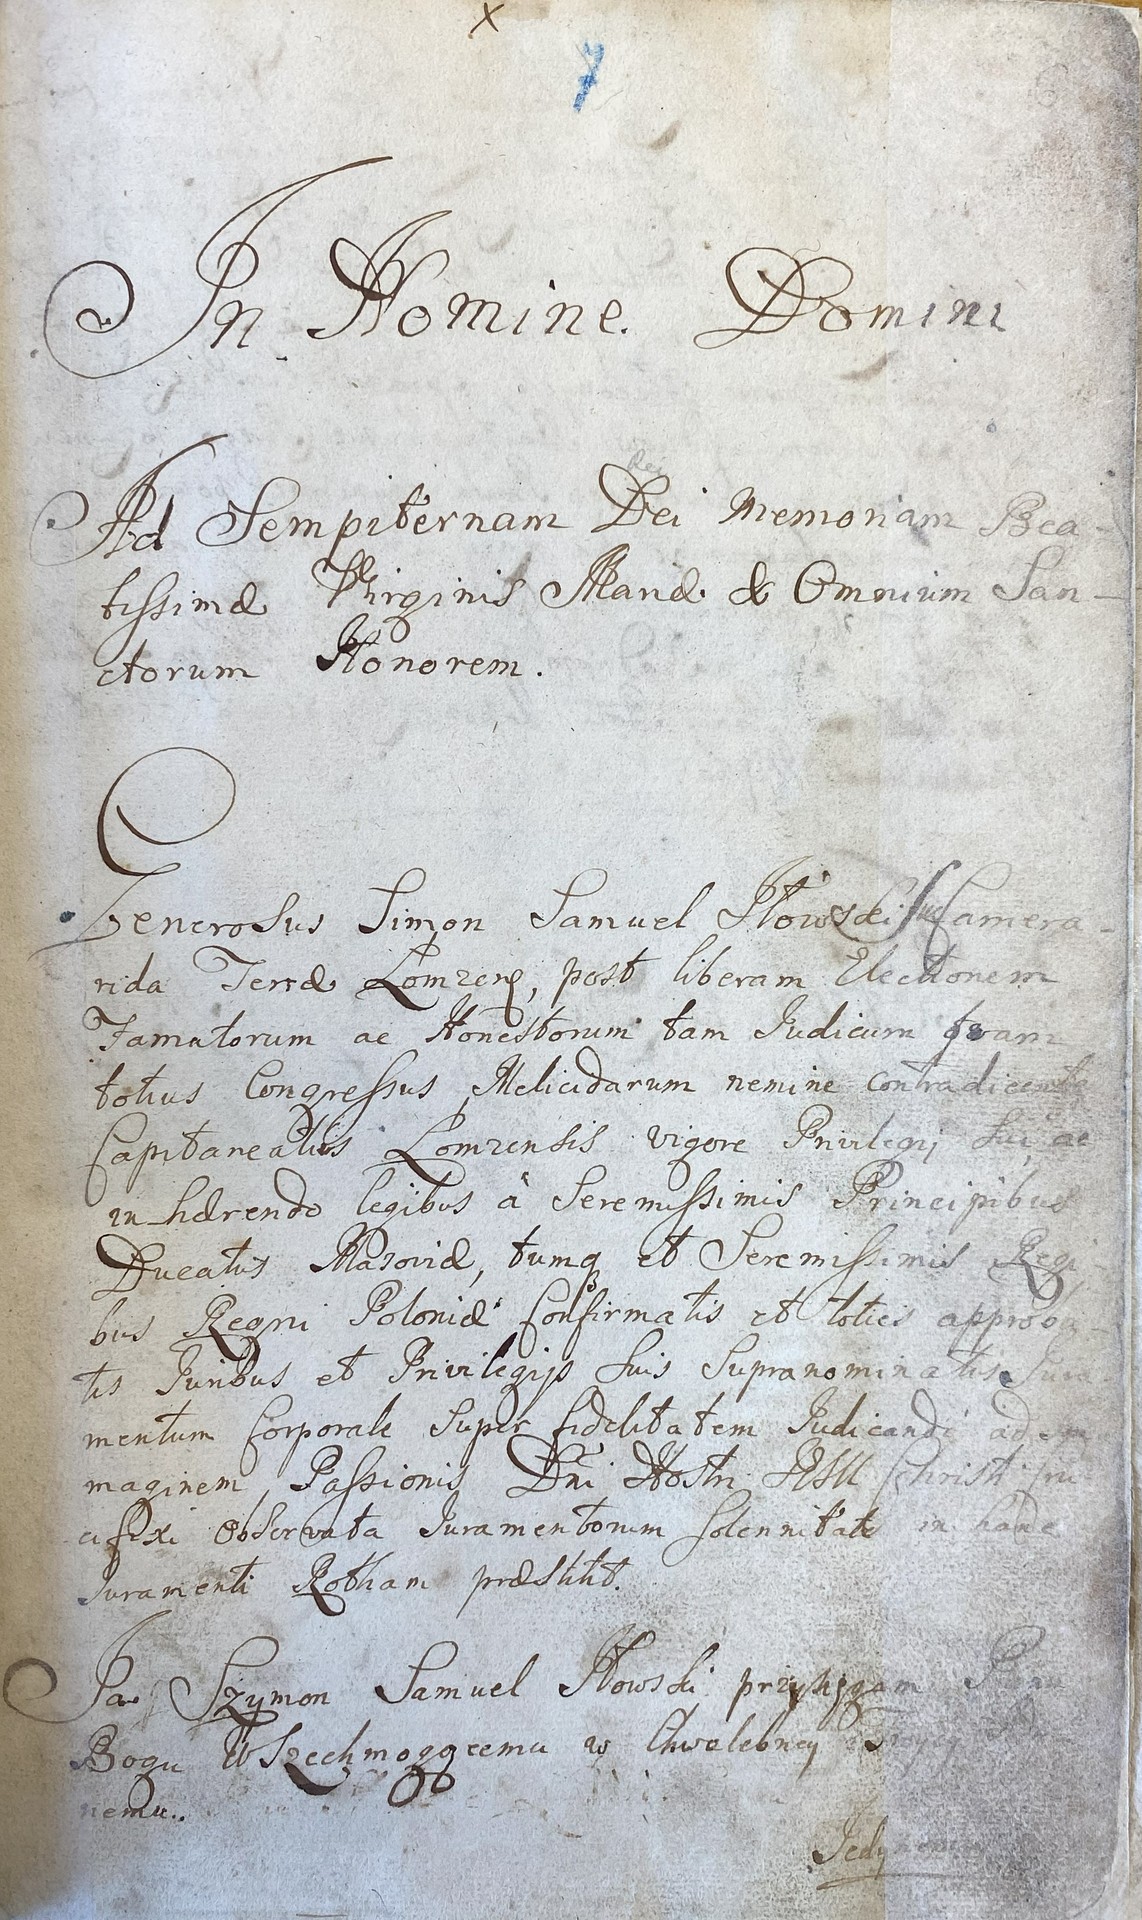 x
7
In Nomine Domini
Rei
Ad Sempiternam Dei Memoriam Bea-
tissimæ Virginis Mariæ & Omnium San-
ctorum Honorem.
Generosus Simon Samuel Camera-
rida Terræ Lomzen, post liberam Electionem
Famatorum ac Honestorum tam Judicum qvam
totius Congressus Melicidarum nemine Contradicente
Capitaneatus Lomzensis vigore Privilegij sui, ac
in hærendo legibus à Serenissimis Principibus
Ducatus Masoviæ, tumq et Serenissimis Regi-
bus Regni Poloniæ Confirmatis et toties approba-
tis Juribus et Privilegijs suis Supranominatis Jura-
mentum Corporale Super fidelitatem Judicandi ad
maginem Passionis Dni Nostri JESU Christi cru
cifixi observata Juramentorum Solennitate in hanc
Juramenti Rotham præstitit.
Ja Szymon Samuel przysięgam Panu
Bogu Wszechmogącemu w Chwalebney
nemu.
Jedynemu